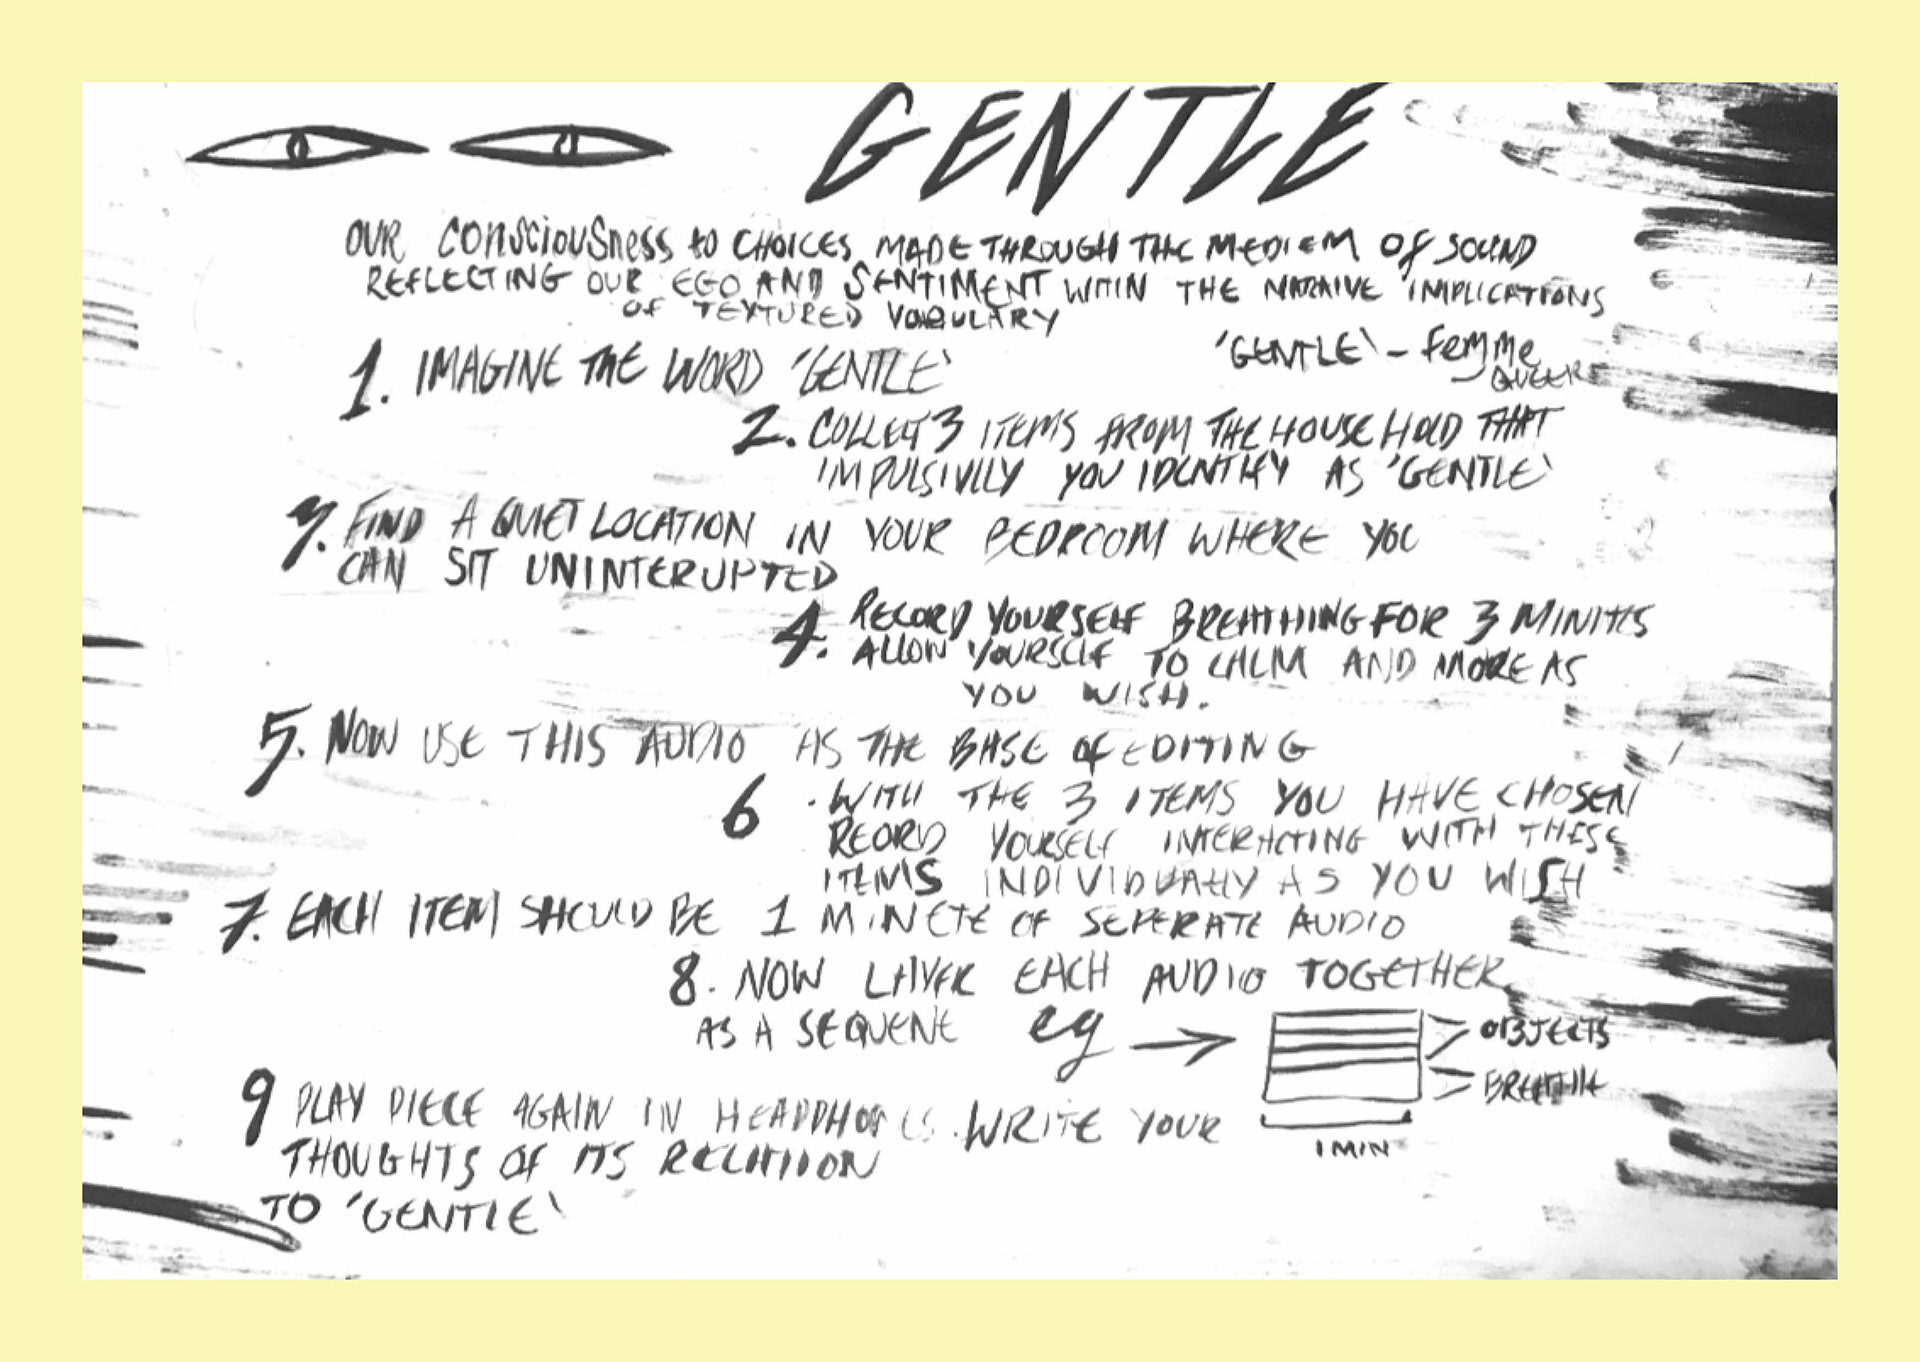 GENTLE
OUR CONSCIOUSNESS to CHOICES MADE THROUGH THE MEDIEM OF SOUND
REFLECTING OUR EGO AND SENTIMENT WITIN THE NARAIVE IMPLICATIONS
OF TEXTURED VOABULARY
'GENTLE' - Femme
- QUEER
1. IMAGINE THE WORD 'GENTLE'
2. COLLECT 3 ITEMS FROM THE HOUSEHOLD THAT
IMPULSIVLLY YOU IDENTIFY AS 'GENTLE'
3. FIND A QUIET LOCATION IN YOUR BEDROOM WHERE YOU
CAN SIT UNINTERUPTED
4. RECORD YOURSELF BREATHING FOR 3 MINITES
ALLOW YOURSELF TO CALM AND MORE AS
YOU WISH.
5. NOW USE THIS AUDIO AS THE BASE OF EDITING
6. WITH THE 3 ITEMS YOU HAVE CHOSEN
REORD YOURSELF INTERACTING WITH THESE
ITEMS INDIVIDUALLY AS YOU WISH
7. EACH ITEM SHOULD BE 1 MINETE OF SEPERATE AUDIO
8. NOW LAYER EACH AUDIO TOGETHER
AS A SEQUENE eg →
OBJECTS
BREATHE
1 MIN
9 PLAY PIECE AGAIN IN . WRITE YOUR
THOUGHTS OF ITS RELATION
TO 'GENTLE'